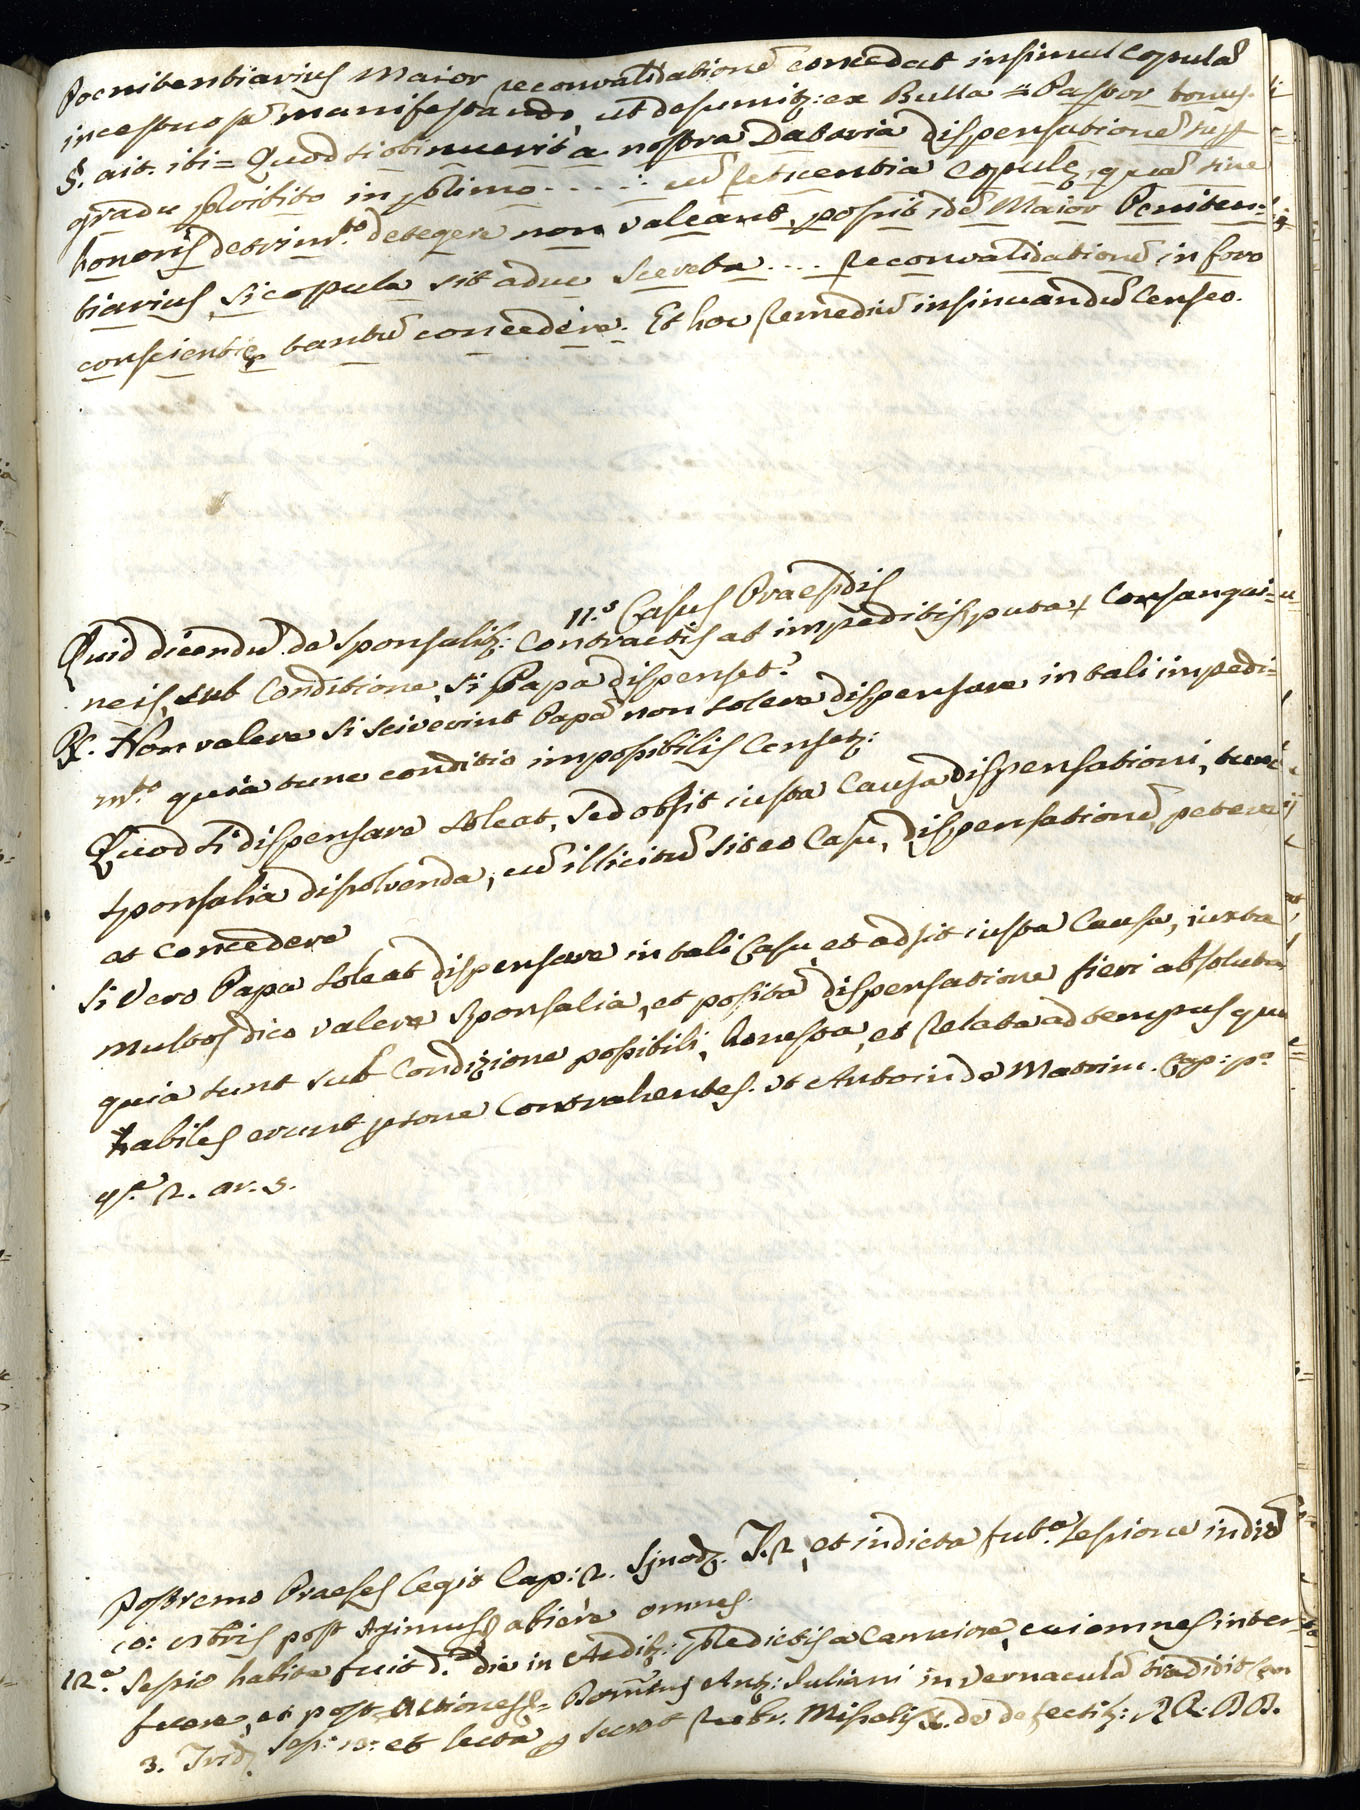 Poenitentiarius Maior reconvalidatione͂ concedat insimul copula͂
incestuosa͂ manifestando, ut desumitz: ex Bulla = Pastor bonus.
§. ait. ibi = Quod si obtinuerit a nostra Dataria dispensatione͂ sup̱
gradu ꝓhibito in primo ..... cu͂ reticentia Copulę, qua͂ sine
honoris detrim.to detegere non valeant, possit ide͂ Maior Peniten=
tiarius, si copula sit aduc secreta .... reconvalidatione͂ in foro
conscientię tantu͂ concedere. Et hoc remediu͂ insinuandu͂ Censeo.
11.s Casus Praesidis
Quid dicendu͂ de Sponsalitz: Contractis ab impeditis, puta, Consangui=
neis, sub Conditione, si Papa dispenset?
R. Non valere si sciverint Papa͂ non solere dispensare in tali impedi=
m.to quia tunc conditio impossibilis Censetz:
Quod si dispensare soleat, sed obsit iusta Causa dispensationi, tunc
sponsalia dissolvenda, cu͂ illicitu͂ sit eo Casu, dispensatione͂ petere
at concedere
Si Vero Papa soleat dispensare in tali Casu, et adsit iusta Causa, iuxta
multos dico valere Sponsalia, et posita dispensatione fieri absoluta
quia sunt sub Condizione possibili, honesta, et relata ad tempus quo
habiles erunt ꝑsone Contrahentes. Vt Antoin de Matrim. Cap: p.o
q.e 2. ar. 5.
Postremo Praeses legit Cap: 2. Synodz. T. 2, et indicta fut.a sessione in die͂
10: 9bris post Agimus abiere omnes.
12.a Sessio habita fuit d.a die in Aeditz: ꝓedictis a Camuiore, cui omnes inter=
fuere, et post Actiones Antz: Iuliani in vernacula͂ tradidit
3. Trid. Sess: 13: et lecta Rubr. Missalis de defectitz: RR. DD.